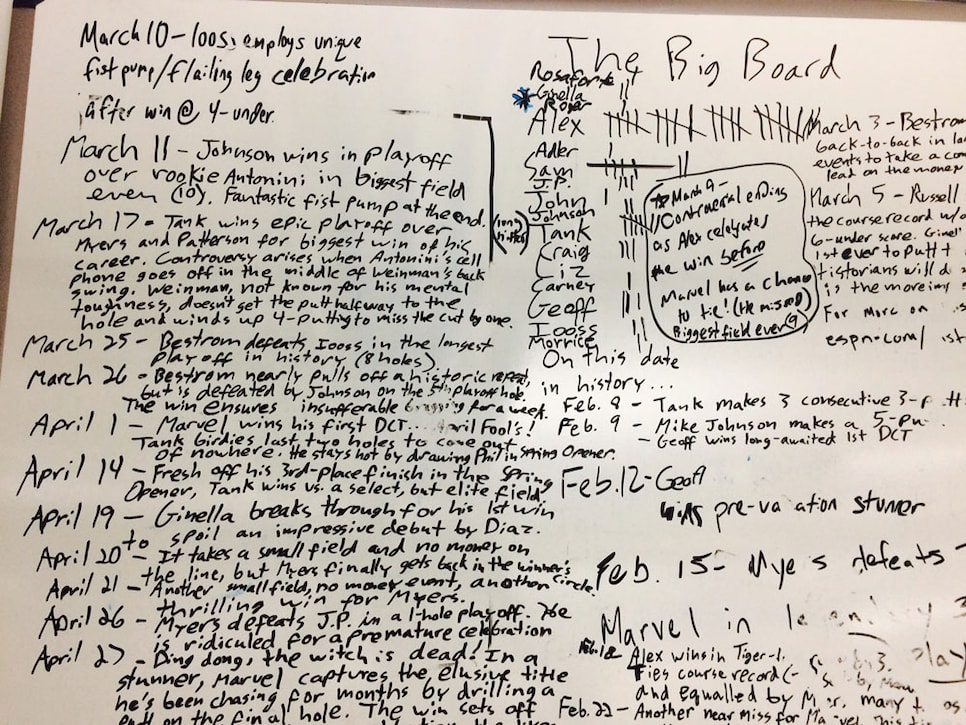 March 10 - Iooss employs unique
fist pump/flailing leg celebration
after win @ 4-under.
March 11 - Johnson wins in playoff
over rookie Antonini in biggest field
even (10). Fantastic fist pump at the end.
March 17 - Tank wins epic playoff over
Myers and Patterson for biggest win of his
career. Controversy arises when Antonini's cell
phone goes off in the middle of Weinman's back
swing. Weinman, not known for his mental
toughness, doesn't get the putt halfway to the
hole and winds up 4-putting to miss the cut by one.
March 25 - Bestrom defeats Iooss in the longest
playoff in history (8 holes).
March 26 - Bestrom nearly pulls off a historic repeat,
but is defeated by Johnson on the 5th playoff hole.
The win ensures insufferable bragging for a week.
April 1 - Marvel wins his first DCT... April Fool's!
Tank birdies last two holes to come out
of nowhere. He stays hot by drawing Phil in Spring Opener.
April 14 - Fresh off his 3rd-place finish in the Spring
Opener, Tank wins vs. a select, but elite field.
April 19 - Ginella breaks through for his 1st win
to spoil an impressive debut by Diaz.
April 20 - It takes a small field and no money on
the line, but Myers finally gets back in the winner's
circle.
April 21 - Another small field, no money event, another
thrilling win for Myers.
April 26 - Myers defeats J.P. in a 1-hole playoff. He
is ridiculed for a premature celebration
April 27 - Ding dong, the witch is dead! In a
stunner, Marvel captures the elusive title
he's been chasing for months by drilling a
putt on the final hole. The win sets off
The Big Board
Rosaforte
Ginella
Alex
Adler
Sam
J.P.
John
Johnson
Tank
Craig
Ciz
Carney
Geoff
Iooss
Morrice
March 9 -
Controversial ending
as Alex celebrates
the win before
Marvel has a chance
to tie! (He missed)
Biggest field ever (9)
March 3 - Bestrom
back-to-back in
events to take a
lead on the money
March 5 - Russell
the course record w/
6-under score.
1st ever to putt
Historians will
is the more
For more on
espn.com/
On this date
in history...
Feb. 8 - Tank makes 3 consecutive 3-putt
Feb. 9 - Mike Johnson makes a 5-pu
- Geoff wins long-awaited 1st DCT
Feb. 12 - Geoff
wins pre-vacation stunner
Feb. 15 - Myers defeats
Marvel in
Alex wins in Tiger-
Ties course record
and equalled by many
Feb. 22 - Another near miss for Marvel